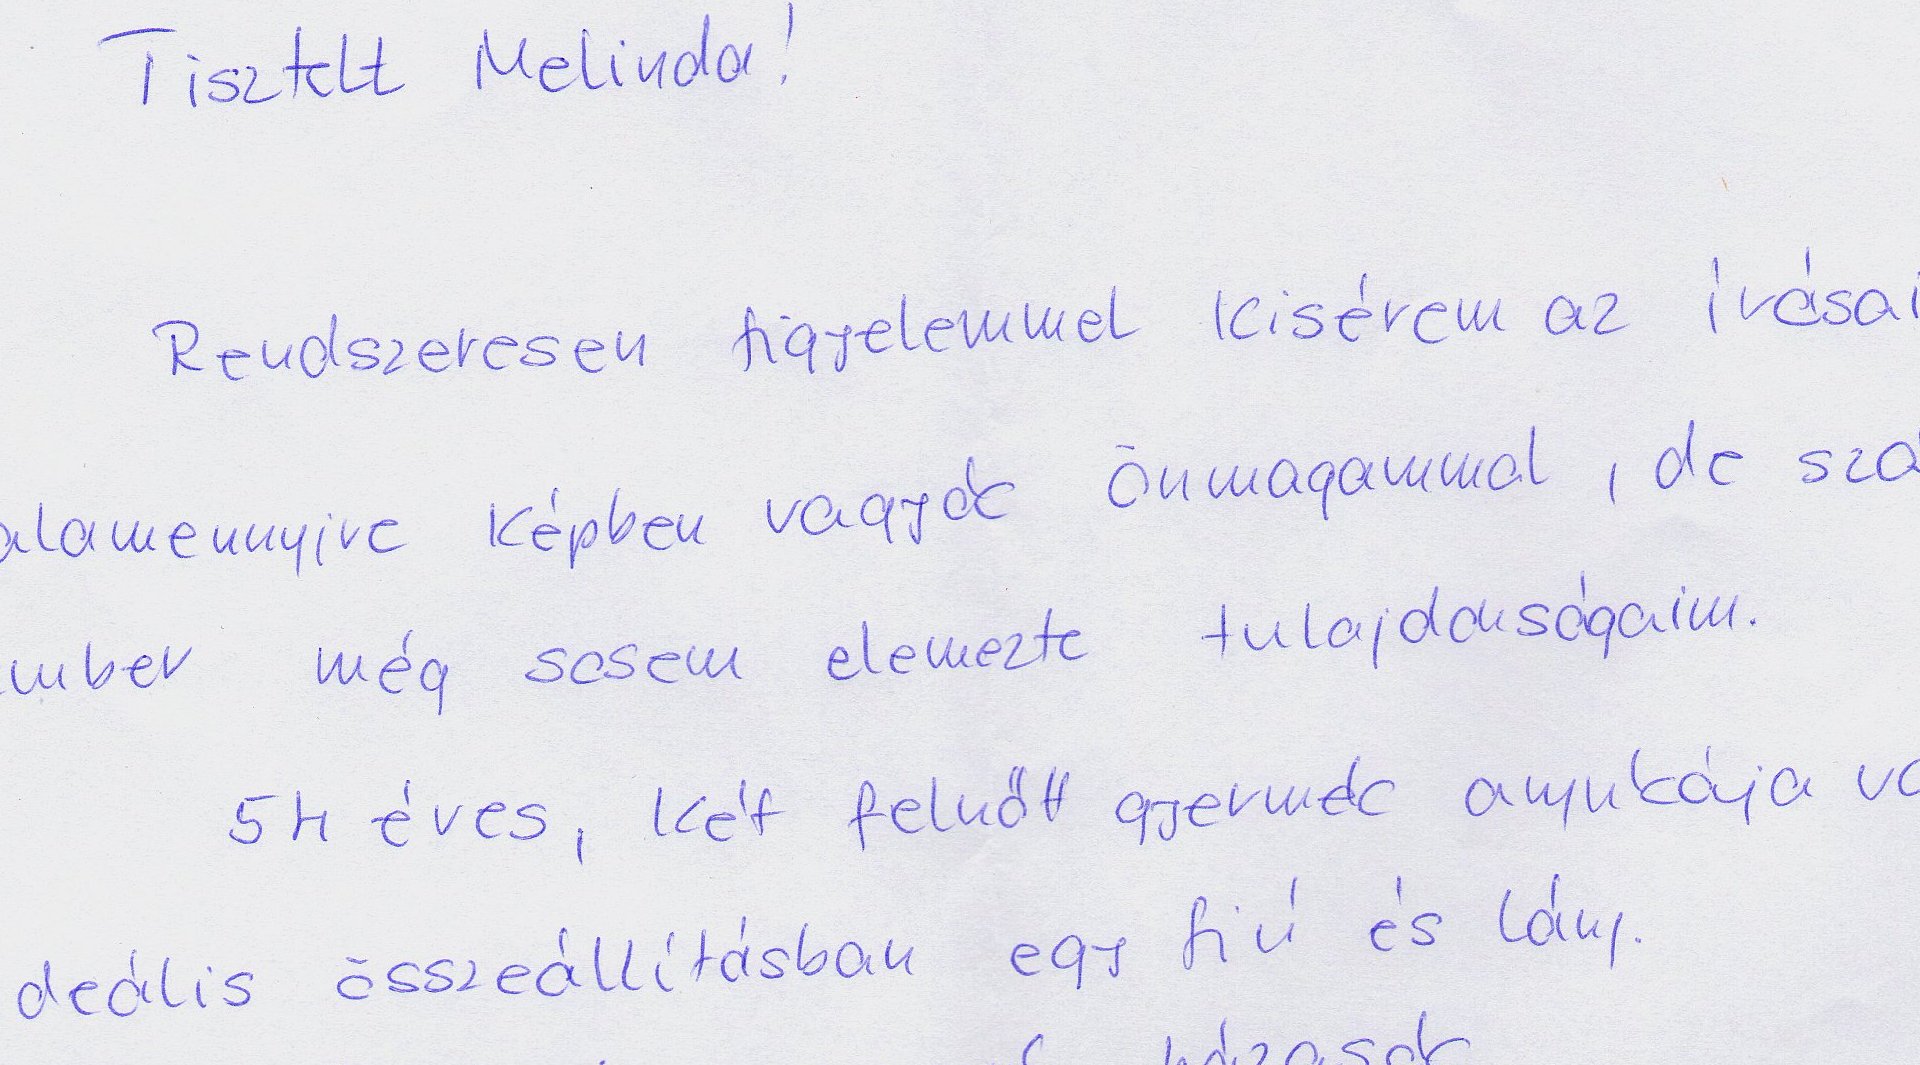 Tisztelt Melinda!
Rendszeresen figyelemmel kisérem az írásai
alamennyire képben vagyok önmagammal, de sza
mber még sosem elemezte tulajdonságaim.
54 éves, két felnőtt gyermek anyukája va
deális összeállításban egy fiú és lány.
házasok